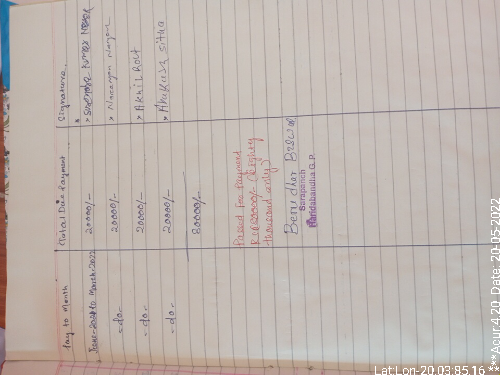 Pay to Month Total Due Payment Signature
June-2021 to March-2022 20000/- Surendra Kumar
-do- 20000/- Narayan Nayak
-do- 20000/- Akhil
-do- 20000/- Sitha
80000/-
Passed for Payment
Rs 80000/- (Eighty
thousand only)
Benudhar
Sarapanch
Haridabandha G.P.
Lat:Lon-20.03:85.16
***Acur:4.20 Date: 20-05-2022